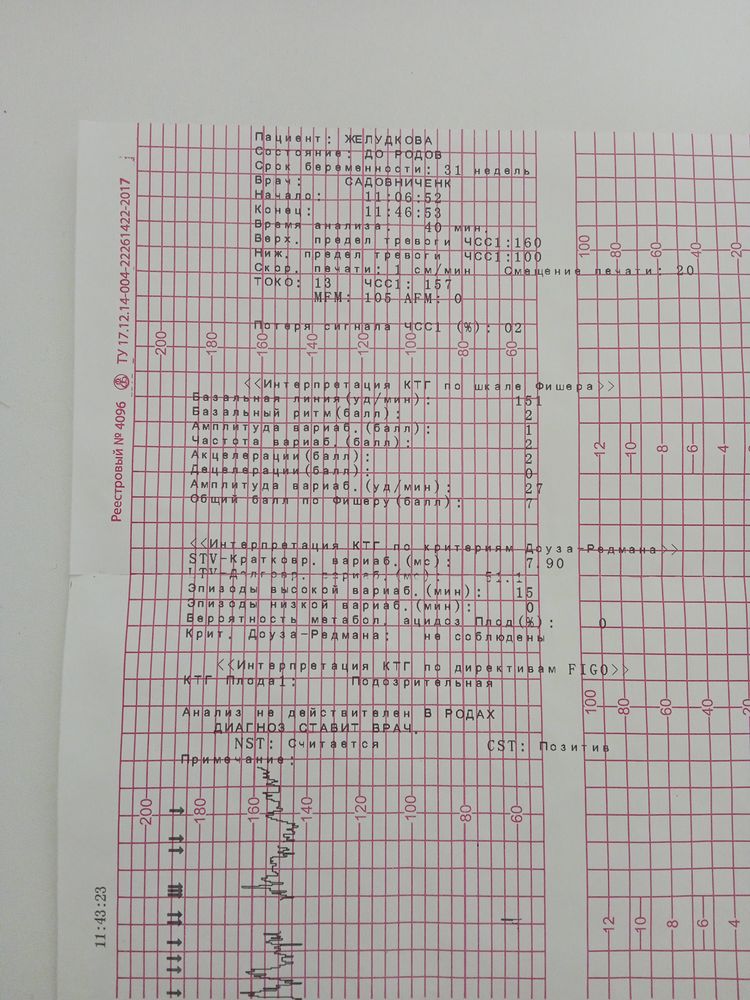 Пациент: ЖЕЛУДКОВА
Состояние: ДО РОДОВ
Срок беременности: 31 недель
Врач: САДОВНИЧЕНК
Начало: 11:06:52
Конец: 11:46:53
Время анализа: 40 мин.
Верх. предел тревоги ЧСС1:160
Ниж. предел тревоги ЧСС1:100
Скор. печати: 1 см/мин Смещение печати: 20
ТОКО: 13 ЧСС1: 157
MFM: 105 AFM: 0
Потеря сигнала ЧСС1 (%): 02
200 180 160 140 120 100 80 60
100 80 60 40 20
<<Интерпретация КТГ по шкале Фишера>>
Базальная линия(уд/мин): 151
Базальный ритм(балл): 2
Амплитуда вариаб.(балл): 1
Частота вариаб.(балл): 2
Акцелерации(балл): 2
Децелерации(балл): 0
Амплитуда вариаб.(уд/мин): 27
Общий балл по Фишеру(балл): 7
12 10 8 6 4
<<Интерпретация КТГ по критериям Доуза-Редмана>>
STV-Кратковр. вариаб.(мс): 7.90
LTV-Долговр. вариаб.(мс): 51.1
Эпизоды высокой вариаб.(мин): 15
Эпизоды низкой вариаб.(мин): 0
Вероятность метабол. ацидоз Плод(%): 0
Крит. Доуза-Редмана: не соблюдены
<<Интерпретация КТГ по директивам FIGO>>
КТГ Плода1: Подозрительная
Анализ не действителен В РОДАХ
ДИАГНОЗ СТАВИТ ВРАЧ.
NST: Считается CST: Позитив
Примечание:
100 80 60 40 20
200 180 160 140 120 100 80 60
12 10 8 6 4
11:43:23
Реестровый № 4096 ТУ 17.12.14-004-22261422-2017